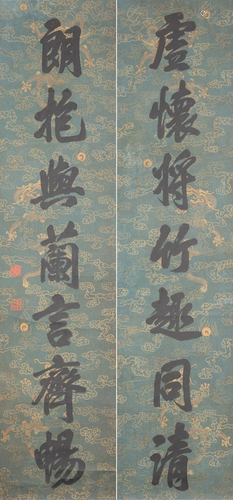 虛懷將竹趣同清
朗抱與蘭言齊暢